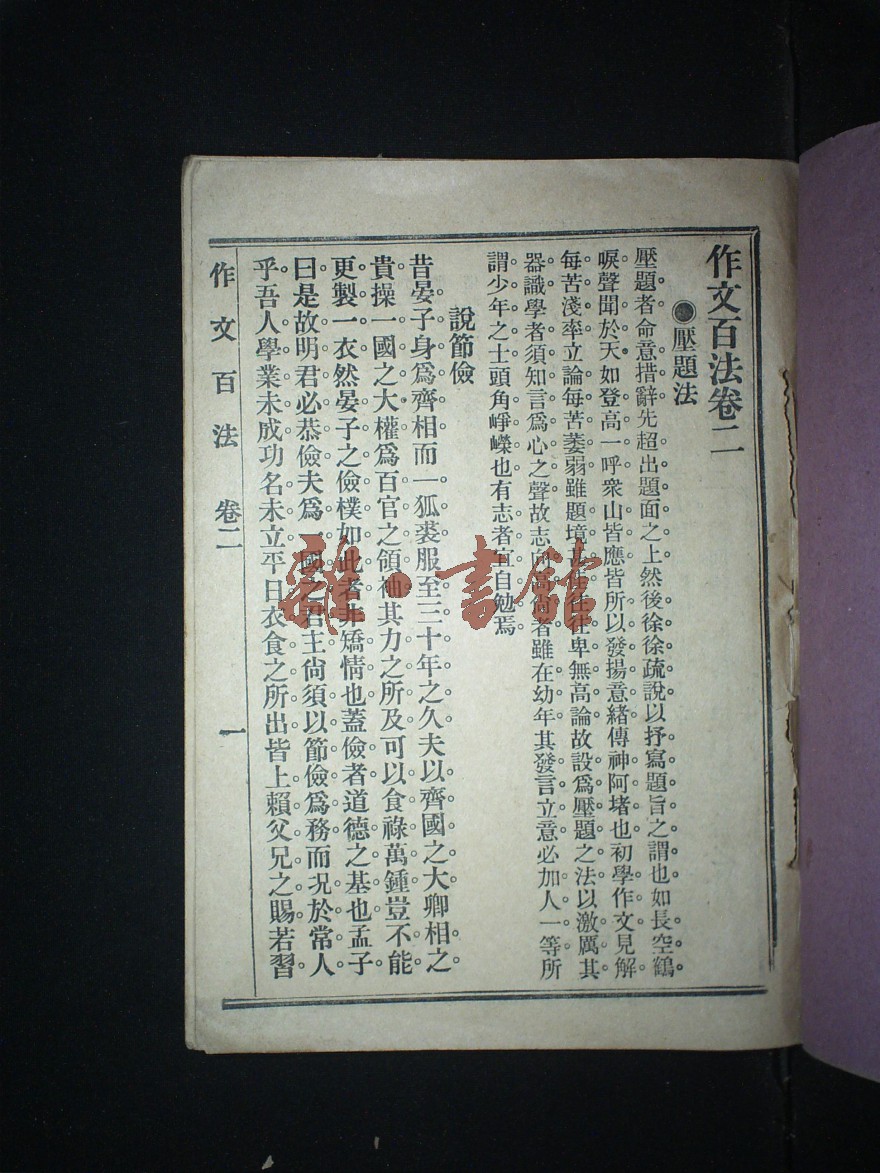 作文百法卷二
●壓題法
壓題者命意措辭先超出題面之上然後徐徐疏說以抒寫題旨之謂也如長空鶴。
唳聲聞於天如登高一呼衆山皆應皆所以發揚意緒傳神阿堵也初學作文見解
每苦淺率立論每苦萎弱雖題境往往卑無高論故設爲壓題之法以激厲其
器識學者須知言爲心之聲故志向高尙者雖在幼年其發言立意必加人一等所
謂少年之士頭角崢嶸也有志者宜自勉焉。
說節儉
昔晏子身爲齊相而一狐裘服至三十年之久夫以齊國之大卿相之
貴操一國之大權爲百官之領袖其力之所及可以食祿萬鍾豈不能
更製一衣然晏子之儉樸如此者非矯情也蓋儉者道德之基也孟子
曰是故明君必恭儉夫爲一國之君主尙須以節儉爲務而况於常人
乎吾人學業未成功名未立平日衣食之所出皆上賴父兄之賜若習
作文百法 卷二 一
雜·書館